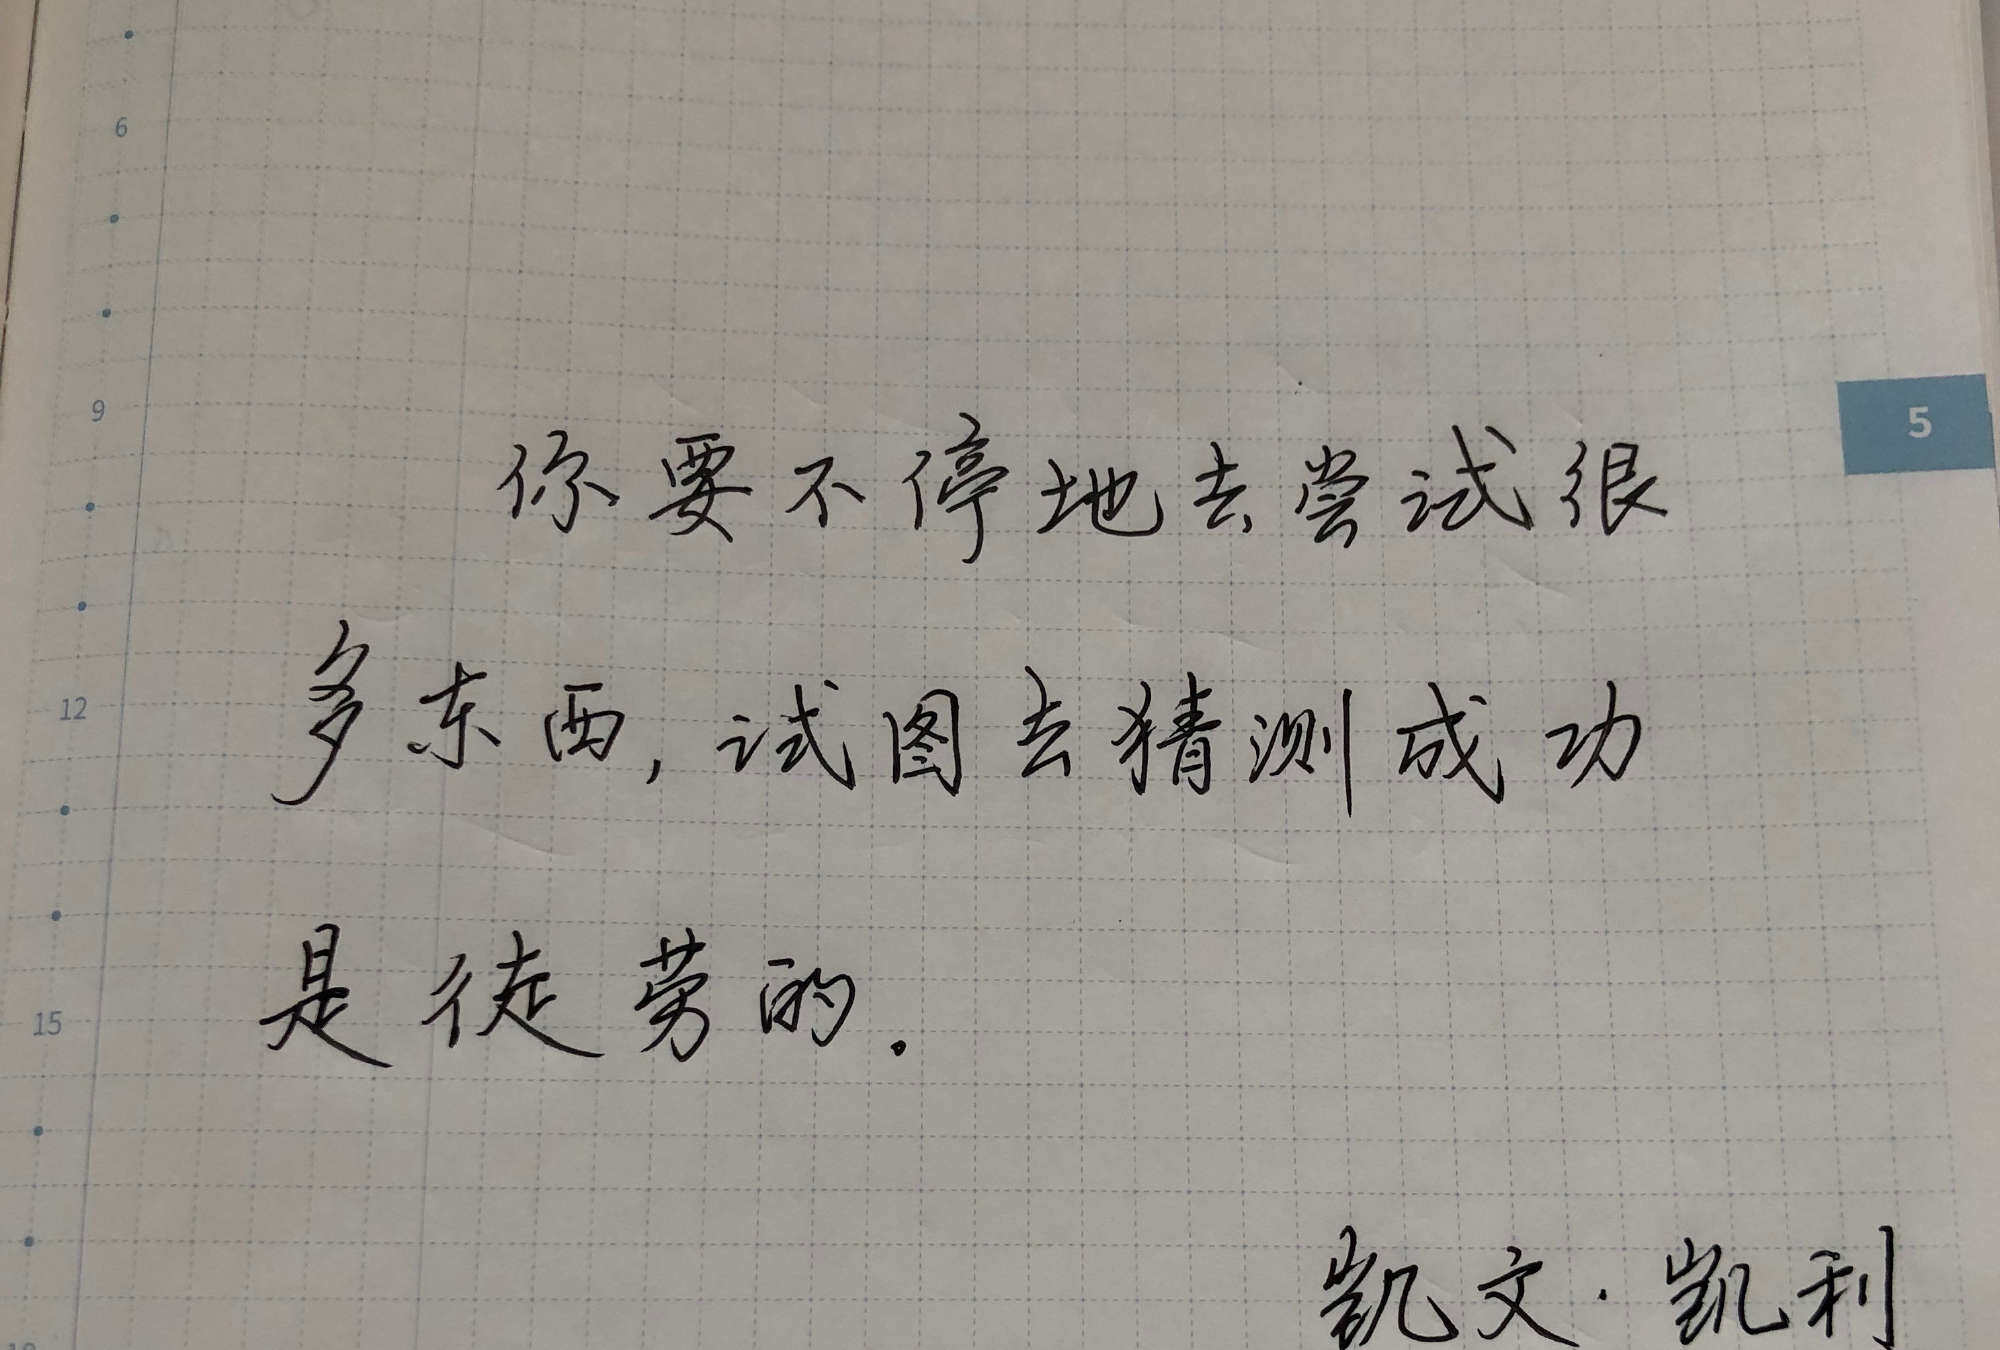 6
9
5
你要不停地去尝试很
12
多东西,试图去猜测成功
是徒劳的.
15
凯文·凯利